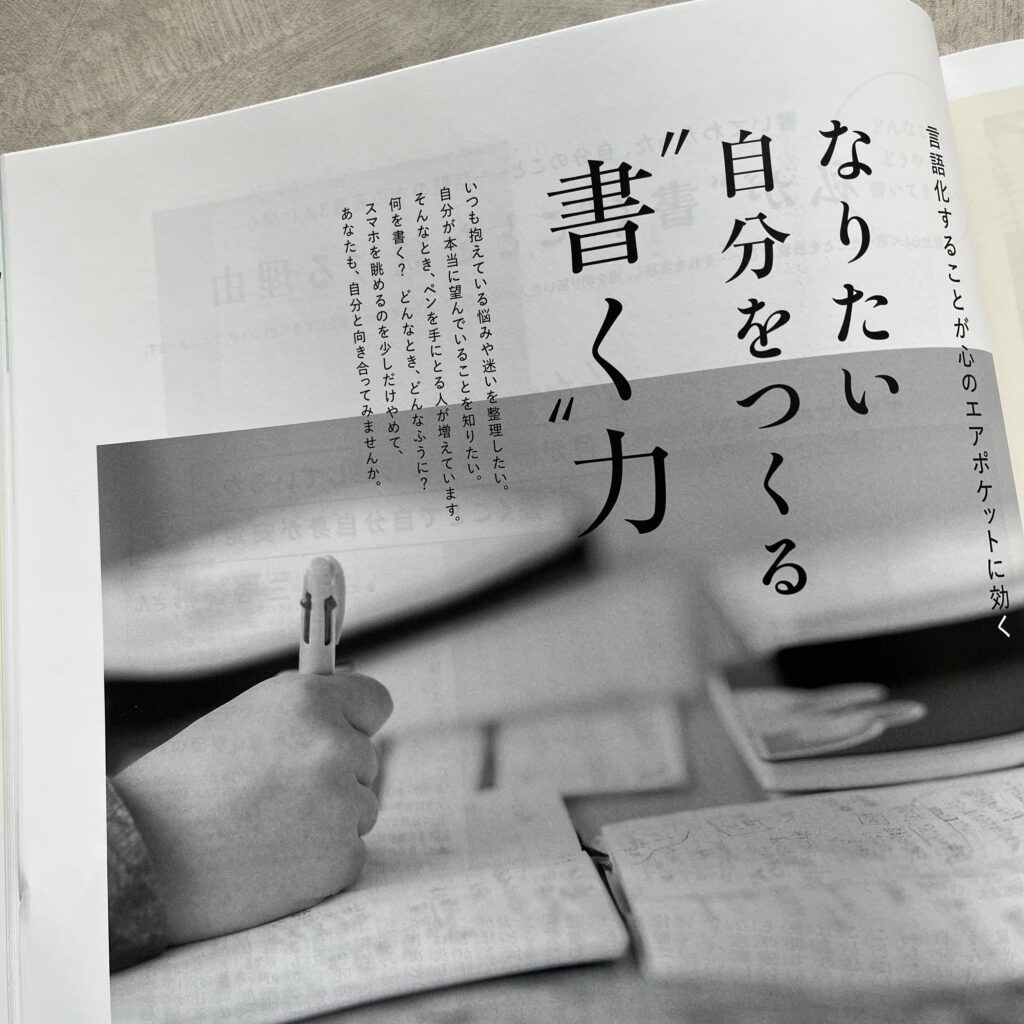 言語化することが心のエアポケットに効く
なりたい
自分をつくる
〝書く〟力
いつも抱えている悩みや迷いを整理したい。
自分が本当に望んでいることを知りたい。
そんなとき、ペンを手にとる人が増えています。
何を書く? どんなとき、どんなふうに?
スマホを眺めるのを少しだけやめて、
あなたも、自分と向き合ってみませんか。